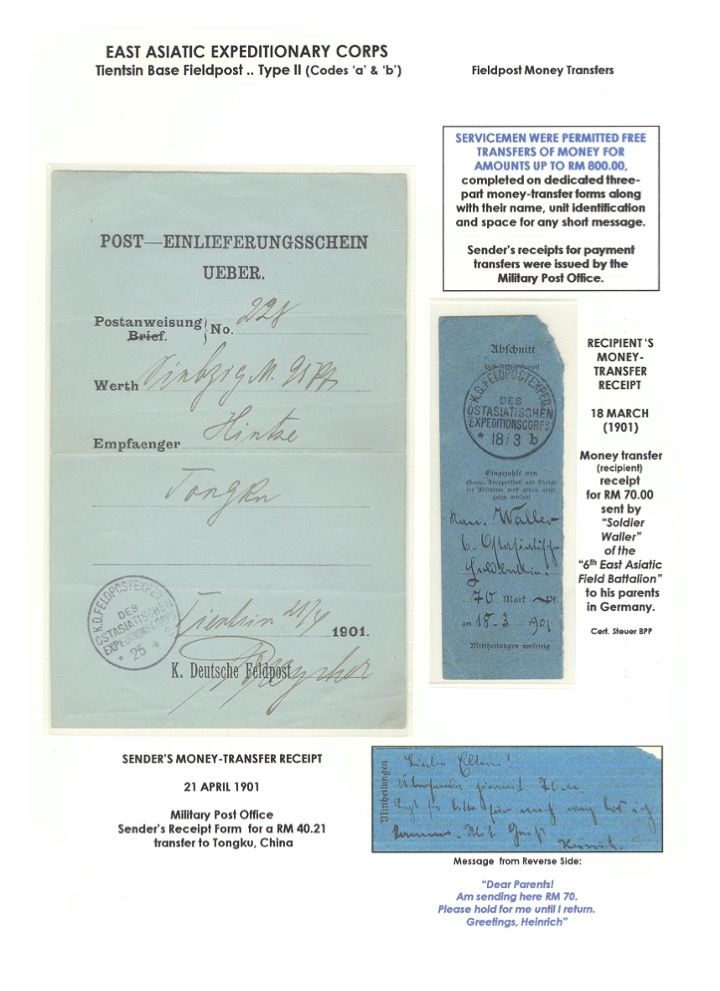 EAST ASIATIC EXPEDITIONARY CORPS
Tientsin Base Fieldpost .. Type II (Codes 'a' & 'b')
Fieldpost Money Transfers
SERVICEMEN WERE PERMITTED FREE
TRANSFERS OF MONEY FOR
AMOUNTS UP TO RM 800.00,
completed on dedicated three-
part money-transfer forms along
with their name, unit identification
and space for any short message.
Sender's receipts for payment
transfers were issued by the
Military Post Office.
POST—EINLIEFERUNGSSCHEIN
UEBER.
Postanweisung
Brief.
No. 228
Werth Siebzig M.
Empfaenger Hintze
Tongku
K.D. FELDPOSTEXPED.
DES
OSTASIATISCHEN
EXPEDITIONSCORPS
* 25 4
Tientsin 1901.
K. Deutsche Feldpost
Abschnitt
K.D. FELDPOSTEXPED.
DES
OSTASIATISCHEN
EXPEDITIONSCORPS
* 18/3 b
Eingezahlt von
Waller
6. Ostasiatische
70 Mark Pf.
am 18.3 1901
Mittheilungen umseitig
RECIPIENT'S
MONEY-
TRANSFER
RECEIPT
18 MARCH
(1901)
Money transfer
(recipient)
receipt
for RM 70.00
sent by
"Soldier
Waller"
of the
"6th East Asiatic
Field Battalion"
to his parents
in Germany.
Cert. Steuer BPP
SENDER'S MONEY-TRANSFER RECEIPT
21 APRIL 1901
Military Post Office
Sender's Receipt Form for a RM 40.21
transfer to Tongku, China
Mittheilungen
Liebe Eltern!
Übersende hiermit 70 M.
bitte für mich
komme. Mit Gruß
Heinrich.
Message from Reverse Side:
"Dear Parents!
Am sending here RM 70.
Please hold for me until I return.
Greetings, Heinrich"